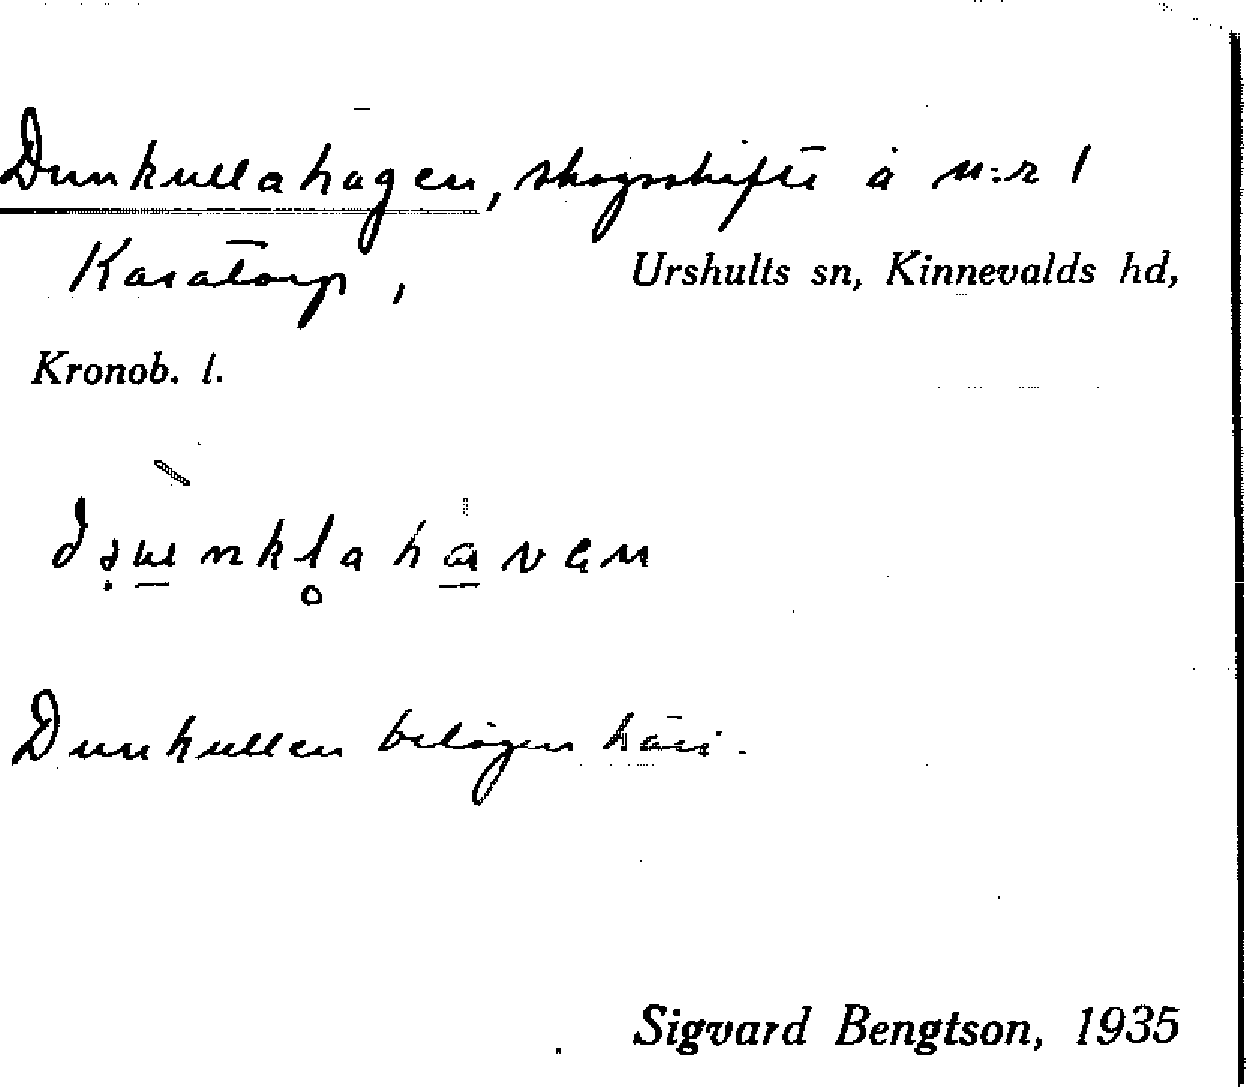 Dunkullahagen, skogsskifte å n:r 1
Kasatorp, Urshults sn, Kinnevalds hd,
Kronob. l.
Dunkullen belägen häri.
Sigvard Bengtson, 1935